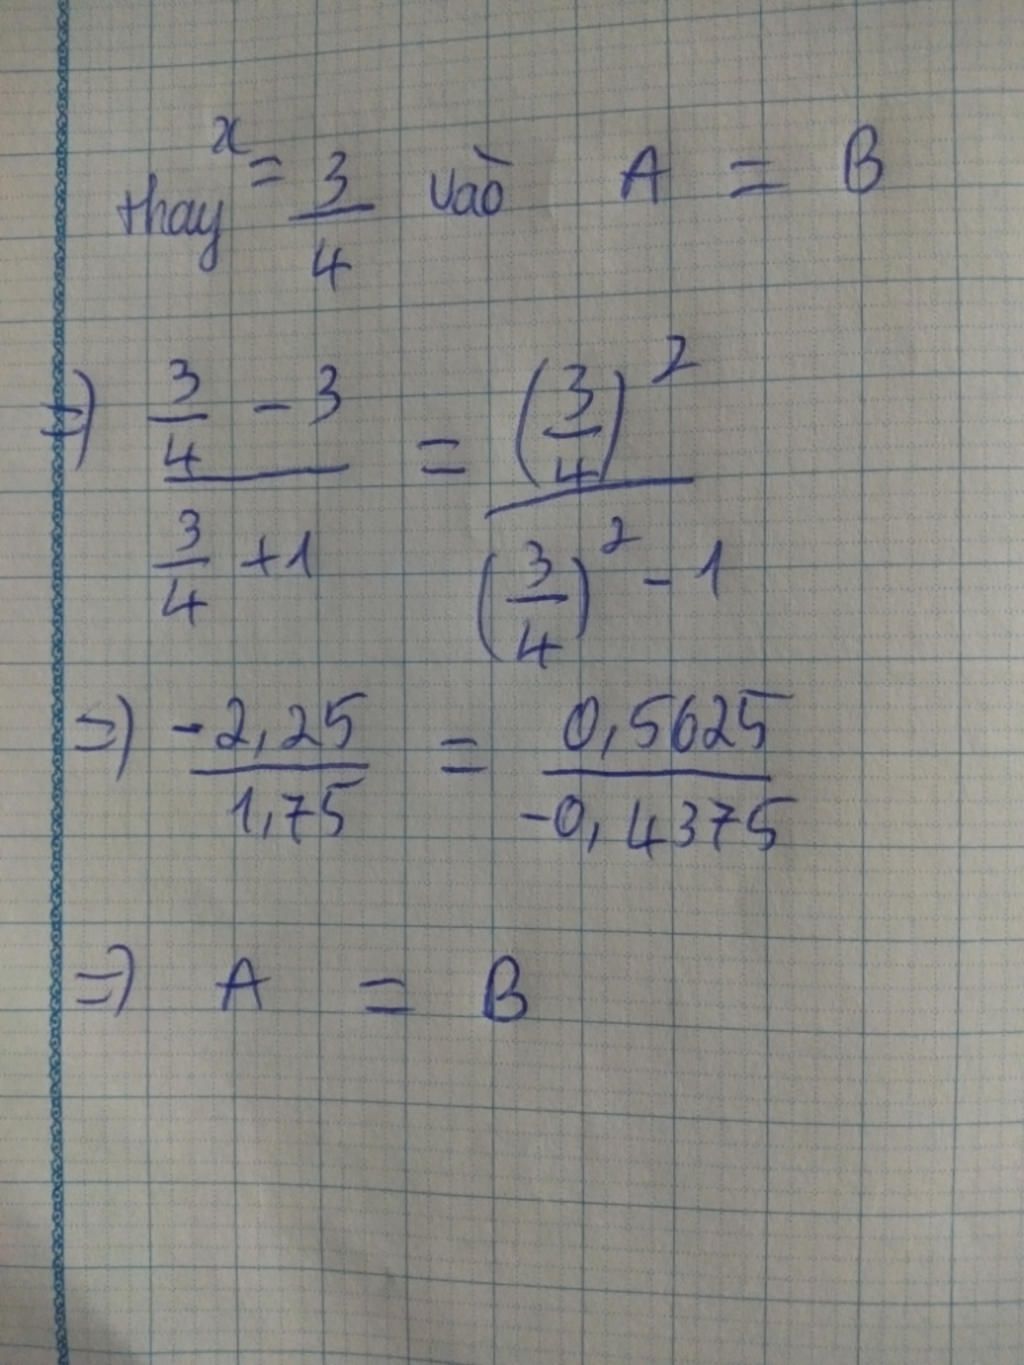 thay x = 3/4 vào A = B
=) (3/4 - 3)/(3/4 + 1) = (3/4)²/((3/4)² - 1)
=) -2,25/1,75 = 0,5625/-0,4375
=) A = B